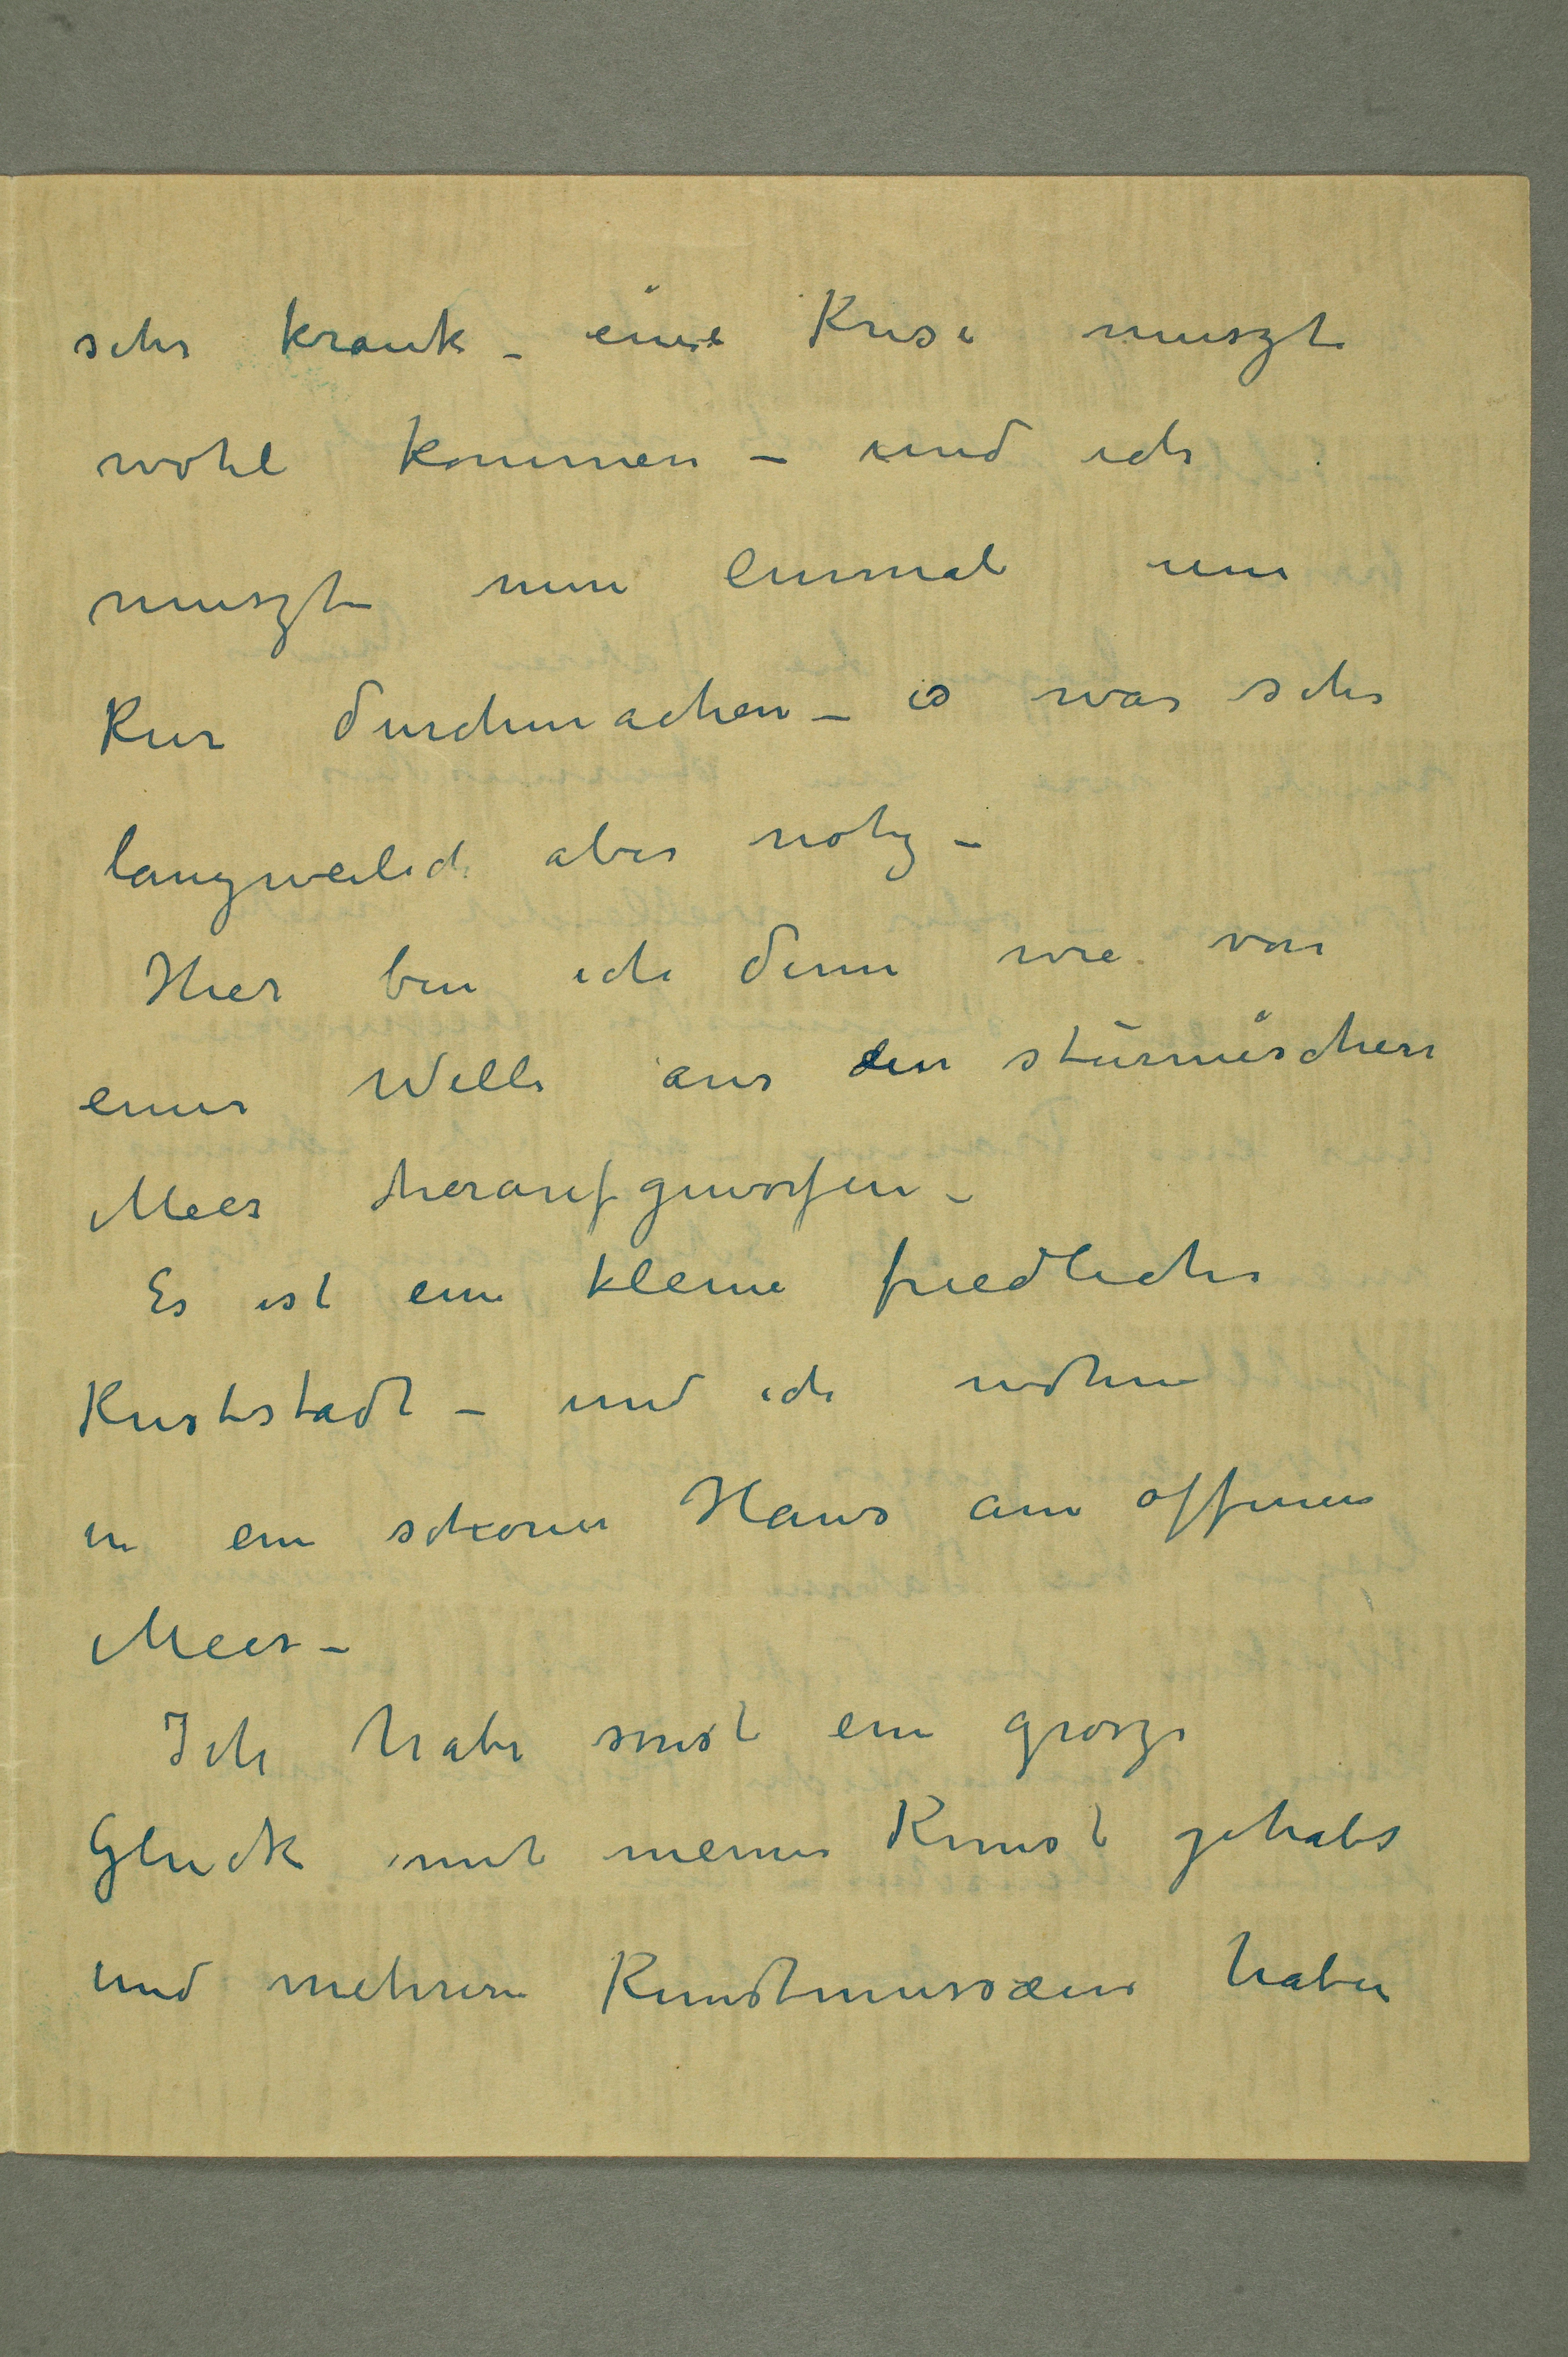 sehr krank – eine Krise muszte
wohl kommen – und ich
muszte nun einmal eine
Kur durchmachen – es war sehr
langweilich aber notig –
Hier bin ich denn wie von
einer Welle aus den stürmischen
Meer heraufgeworfen –
Es ist eine kleine friedliche
Kuststadt – und ich wohne
in ein schones Haus am offenen
Meer –
Ich habe sonst ein grosze
Gluck mit meiner Kunst gehabt
und mehrere Kunstmusæen haben